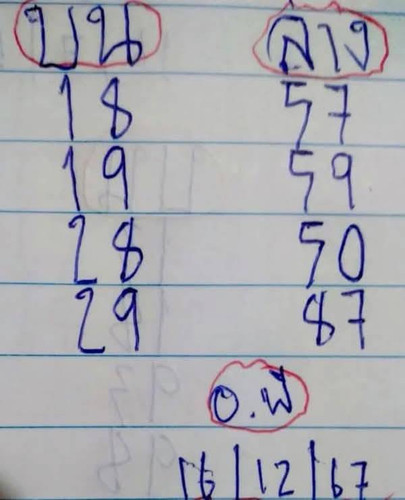 บน ล่าง
18 57
19 59
28 50
29 87
อ.พี
16/12/67